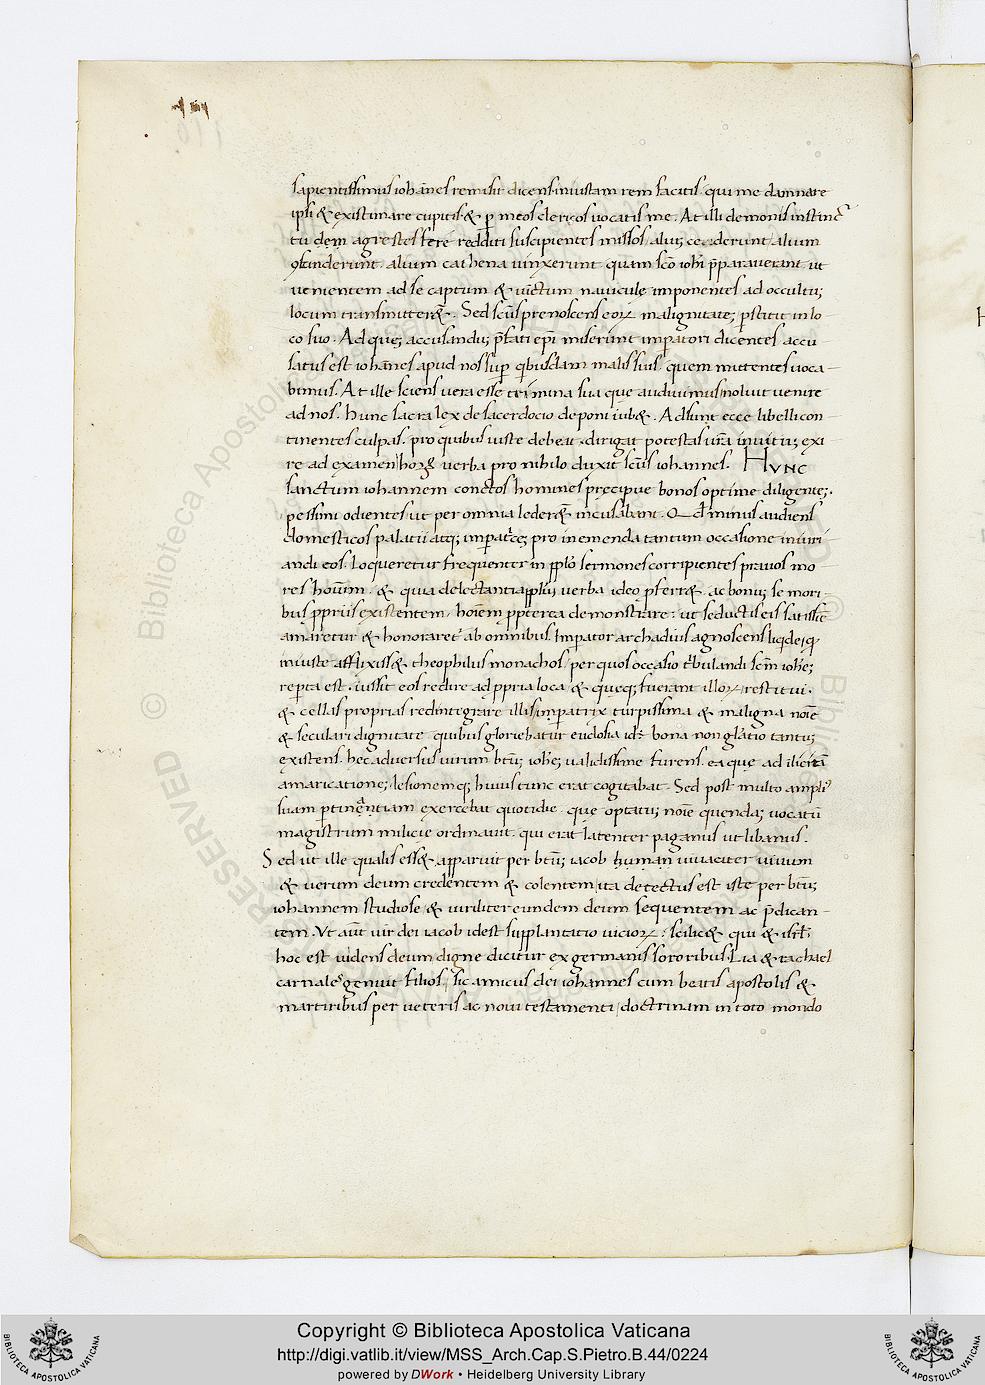 sapientissimus iohānes remisit dicens. iniustam rem facitis. qui me damnare
ipsi & existimare cupitis. & p̱ meos clericos uocatis me. At illi demonis instinc
tu dem agrestes fere redditi suscipientes missos. aliuꝫ ceciderunt. alium
ꝯscinderunt. alium cathena uinxerunt quam sc̄o ioh̄i p̄parauerant. ut
uenientem ad se captum & uinctum nauicule imponentes ad occultuꝫ
locum transmitter&. Sed sc̄us prenoscens eoꝝ malignitateꝫ p̱stitit in lo
co suo. Ad queꝫ accusanduꝫ p̄fati ep̄i miserunt imp̱atori dicentes accu-
satus est iohānes apud nos sup̱ qͥbusdam malis suis. quem mittentes uoca-
bimus. At ille sciens uera esse crimina sua que audiuimus noluit uenire
ad nos. hunc sacra lex de sacerdocio deponi iub&. Adsunt ecce libelli con-
tinentes culpas. pro quibus iuste debeat. dirigat potestas ur̄a inuituꝫ exi-
re ad examen. hoꝝ uerba pro nihilo duxit sc̄us iohannes. HVNC
sanctum iohannem cunctos homines precipue bonos optime diligenteꝫ.
pessimi odientes ut per omnia leder& incusabant. Qđ minus audiens
domesticos palatii atqꝫ imp̱atͬceꝫ pro inemenda tantum occasione iniuri-
andi eos. loqueretur frequenter in pplo sermones corripientes prauos mo-
res houm. & quia delectantia pplꝫ uerba ideo pfert&. ac bonuꝫ se mori-
bus ppriis existentem. hoiem ppterca demonstrare. ut seductis eis satis sic
amaretur & honoraret᷑ ab omnibus. Imp̱ator archadius agnoscens liqͥde qͥ
iniuste afflixiss& theophilus monachos. per quos occasio tͥbulandi sc̄m ioh̄eꝫ
rep̱ta est. iussit eos redire ad ppria loca & queqꝫ fuerant illoꝝ restitui.
& cellas proprias redintegrare illis. imp̱atrix turpissima & maligna noīe
& seculari dignitate quibus gloriebatur eudosia idꝫ bona non gl̄atio tantuꝫ
existens. hec aduersus uirum bt̄uꝫ ioh̄eꝫ ualidissime furens. ea que ad ilicitā
amaricationeꝫ lesionemqꝫ huius tunc erat cogitabat. Sed post multo ampli᷒
suam p̱tinentiam exercebat quotidie. que optatuꝫ noīe quendaꝫ uocatū
magistrum milicie ordinauit. qui erat latenter paganus ut libanius.
Sed ut ille qualis ess& apparuit per bt̄uꝫ iacob human uiuaciter uiuum
& uerum deum credentem & colentem. ita detectus est iste per bt̄uꝫ
iohannem studiose & uiriliter eundem deum sequentem ac p̄dican-
tem. Vt aūt uir dei iacob idest supplantatio uicioꝝ. scilic& qui & isrl̄.
hoc est uidens deum digne dicitur ex germanis sororibus Lia & rachael
carnales genuit filios. sic amicus dei iohannes cum beatis apostolis &
martiribus per ueteris ac noui testamenti doctrinam in toto mondo
Copyright © Biblioteca Apostolica Vaticana
http://digi.vatlib.it/view/MSS_Arch.Cap.S.Pietro.B.44/0224
powered by DWork • Heidelberg University Library